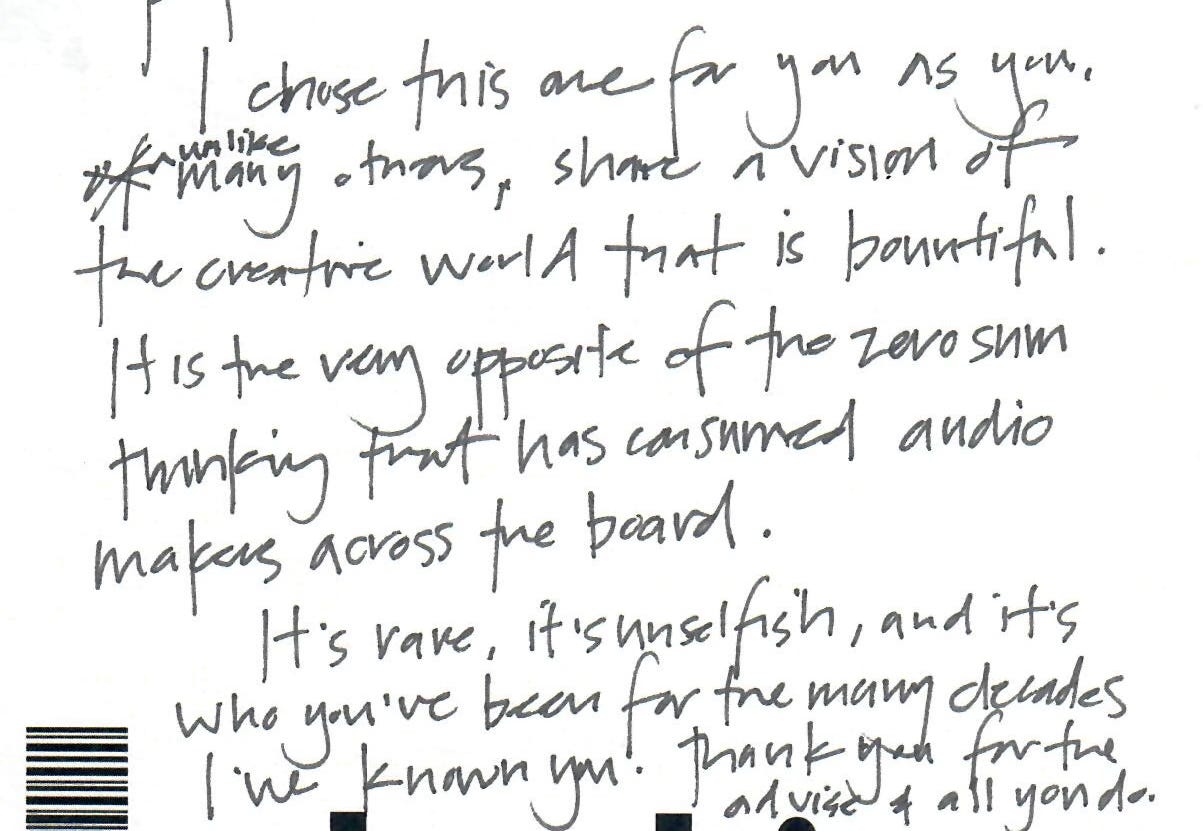 I chose this one for you as you,
unlike
many others, share a vision of
the creative world that is bountiful.
It is the very opposite of the zero sum
thinking that has consumed audio
makers across the board.
It's rare, it's unselfish, and it's
who you've been for the many decades
I've known you. Thank you for the
advise & all you do.